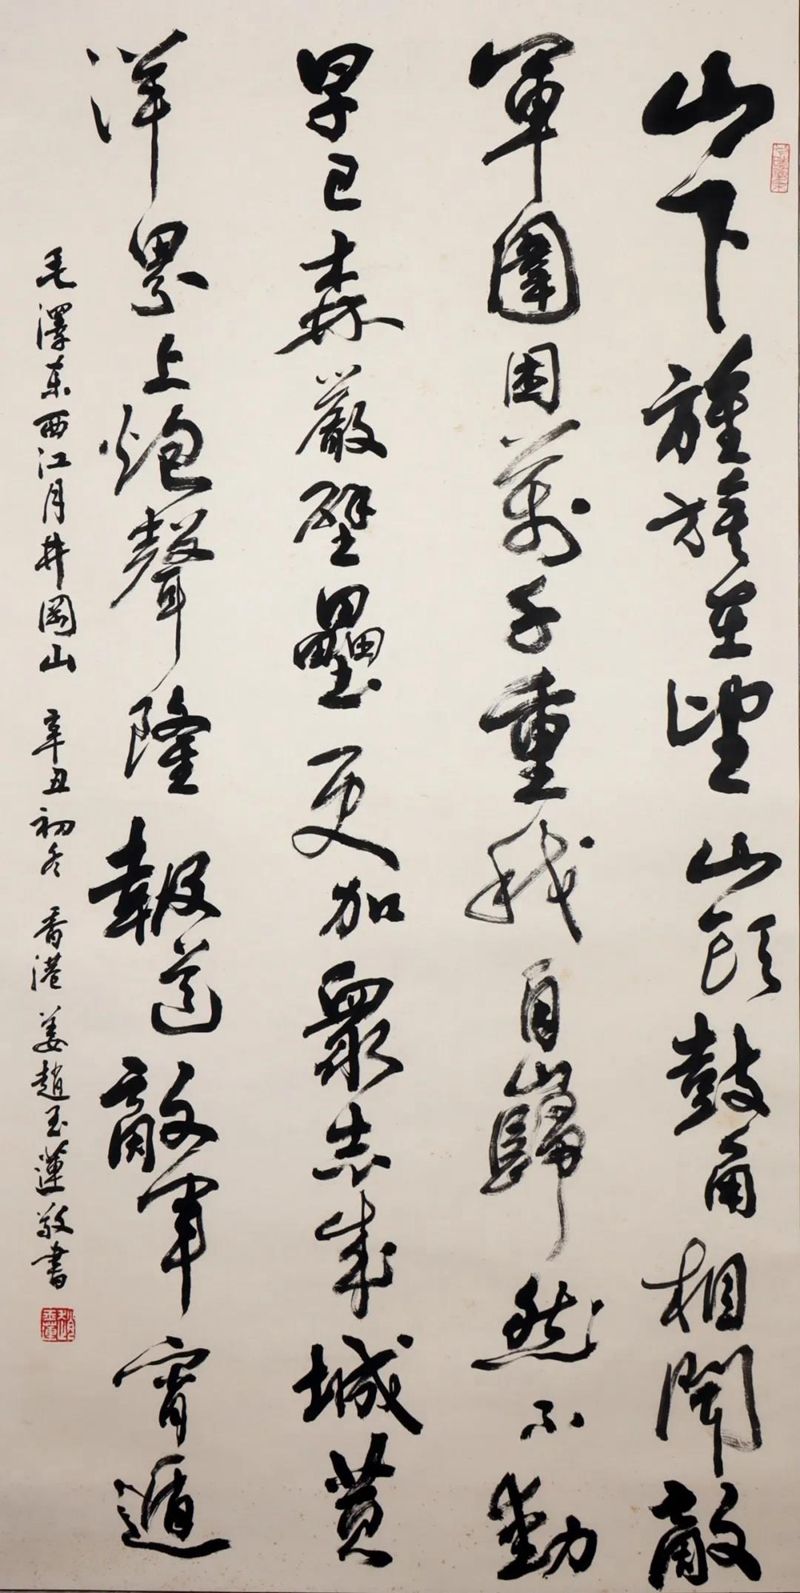 山下旌旗在望山头鼓角相聞敵
軍圍困萬千重我自巋然不動
早已森嚴壁壘更加眾志成城黄
洋界上炮聲隆報道敵軍宵遁
毛澤东西江月井岡山 辛丑初冬 香港 姜趙玉蓮敬書